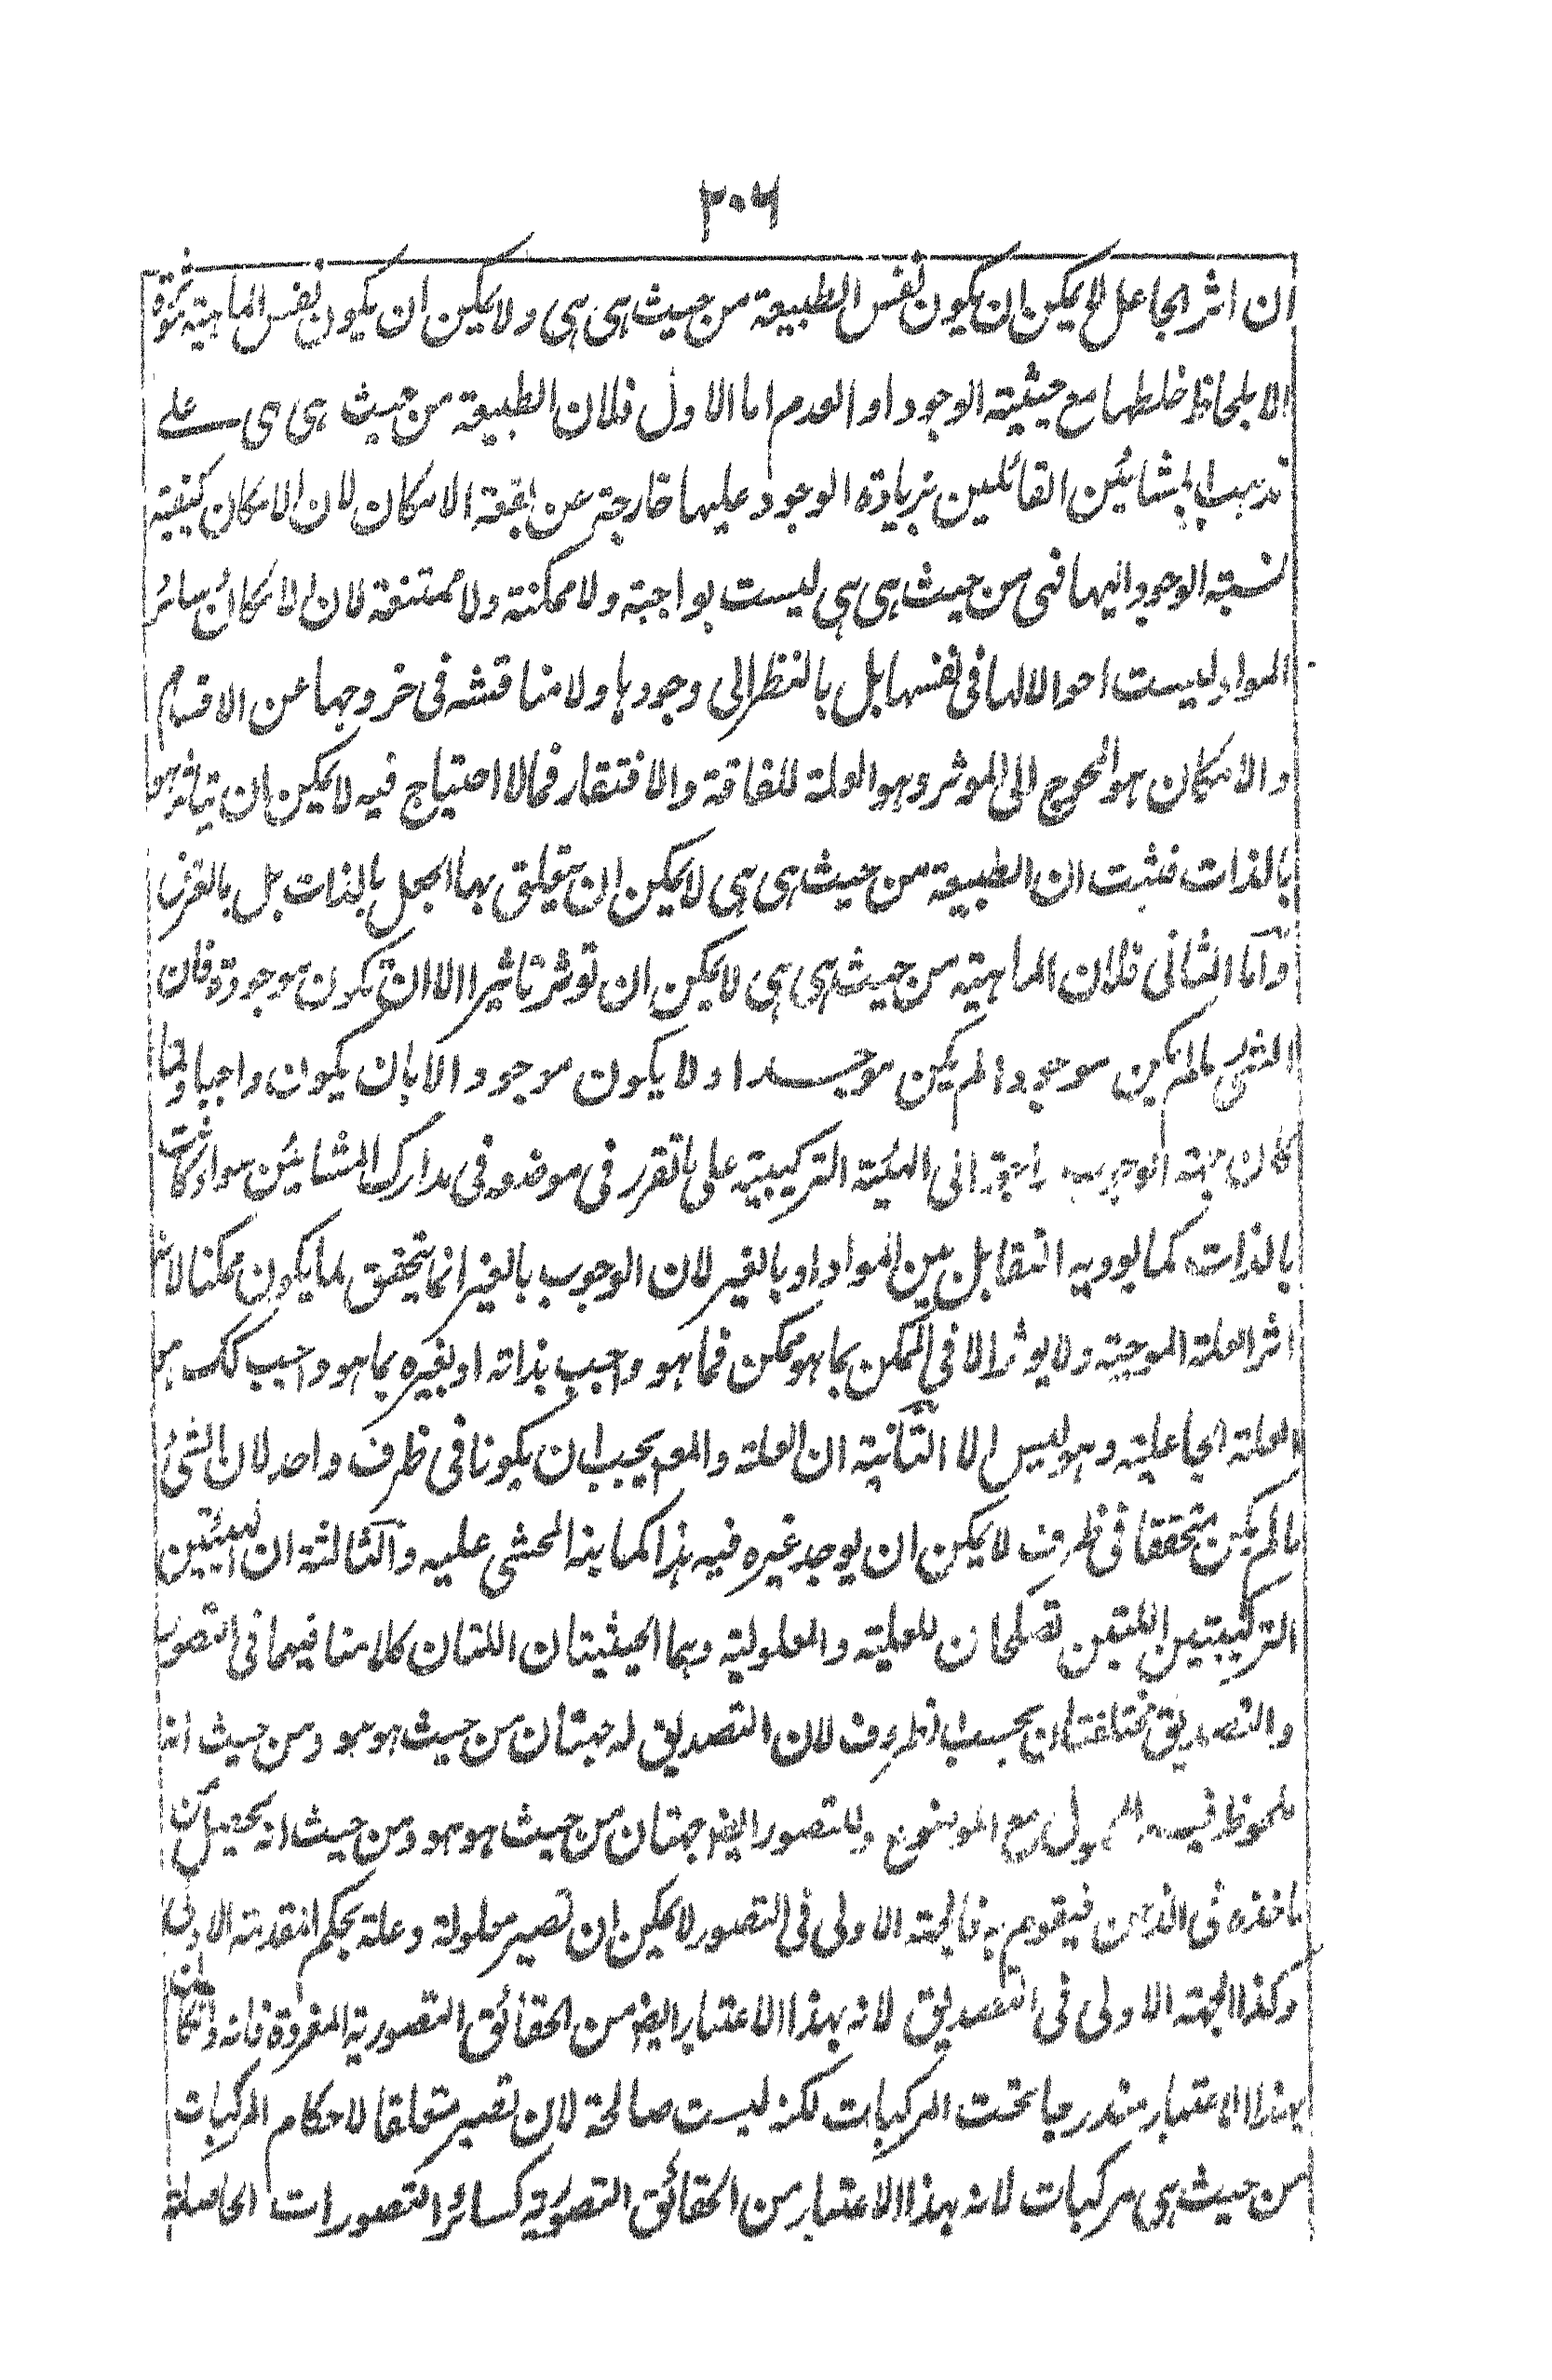 ٢٠٦
ان اثر الجاعل لا يمكن ان يكون نفس الطبيعة من حيث هى هى ولا يمكن ان يكون نفس الماهية مؤثرة
الا بلحاظ خلطها مع حيثية الوجود او العدم اما الاول فلان الطبيعة من حيث هى هى على
مذهب المشائين القائلين بزيادة الوجود عليها خارجة عن بقعة الامكان لان الامكان كيفية
نسبة الوجود اليها فهى من حيث هى هى ليست بواجبة ولا ممكنة ولا ممتنعة لان الامكان سائر
المواد ليست احوالا لها فى نفسها بل بالنظر الى وجودها ولا مناقشة فى خروجها عن الاقسام
والامكان هو المحوج الى الموثر وهو العلة للفاقة والافتقار فما لا احتياج فيه لا يمكن ان يتاثر هو
بالذات فثبت ان الطبيعة من حيث هى هى لا يمكن ان يتعلق بها الجعل بالذات بل بالعرض
واما الثانى فلان الماهية من حيث هى هى لا يمكن ان توثر تاثيرا الا ان تكون موجودة فان
الشئ ما لم يكن موجودا لم يكن موجدا ولا يكون موجودا الا بان يكون واجبا ولما
كان جهة الوجوب راجعة الى الهيئة التركيبية على ما تقرر فى موضعه فى مدارك المشائين سواء كانت
بالذات كما يوديه التقابل بين المواد او بالغير لان الوجوب بالغير انما يتحقق لما يكون ممكنا لانه
اثر العلة الموجبة ولا يوثر الا فى الممكن بما هو ممكن فما هو واجب بذاته او بغيره بما هو واجب كك هو
العلة الجاعلية وهو ليس الا الثانية ان العلة والمعم يجب ان يكونا فى ظرف واحد لان الشئ
ما لم يكن متحققا فى ظرف لا يمكن ان يوجد غيره فيه هذا كما ينه المحشى عليه والثالثة ان الهيئتين
التركيبيتين اللتين تصلحان للعلية والمعلولية وهما الحيثيتان اللتان كلامنا فيهما فى التصور
والتصديق مختلفتان بحسب الظروف لان التصديق له جهتان من حيث هو هو ومن حيث انه
ملحوظ فيه المحمول مع الموضوع وللتصور ايضا جهتان من حيث هو هو ومن حيث انه يحصل من
ماخذه فى الذهن فيقوم به فالجهة الاولى فى التصور لا يمكن ان تصير معلولة وعلة بحكم المقدمة الاولى
وكذا الجهة الاولى فى التصديق لانه بهذا الاعتبار ايضا من الحقائق التصورية المفردة فانه وان كان
بهذا الاعتبار مندرجا تحت المركبات لكنه ليست صالحة لان تصير متعلقا لاحكام المركبات
من حيث هى مركبات لانه بهذا الاعتبار من الحقائق التصورية كسائر التصورات الحاصلة